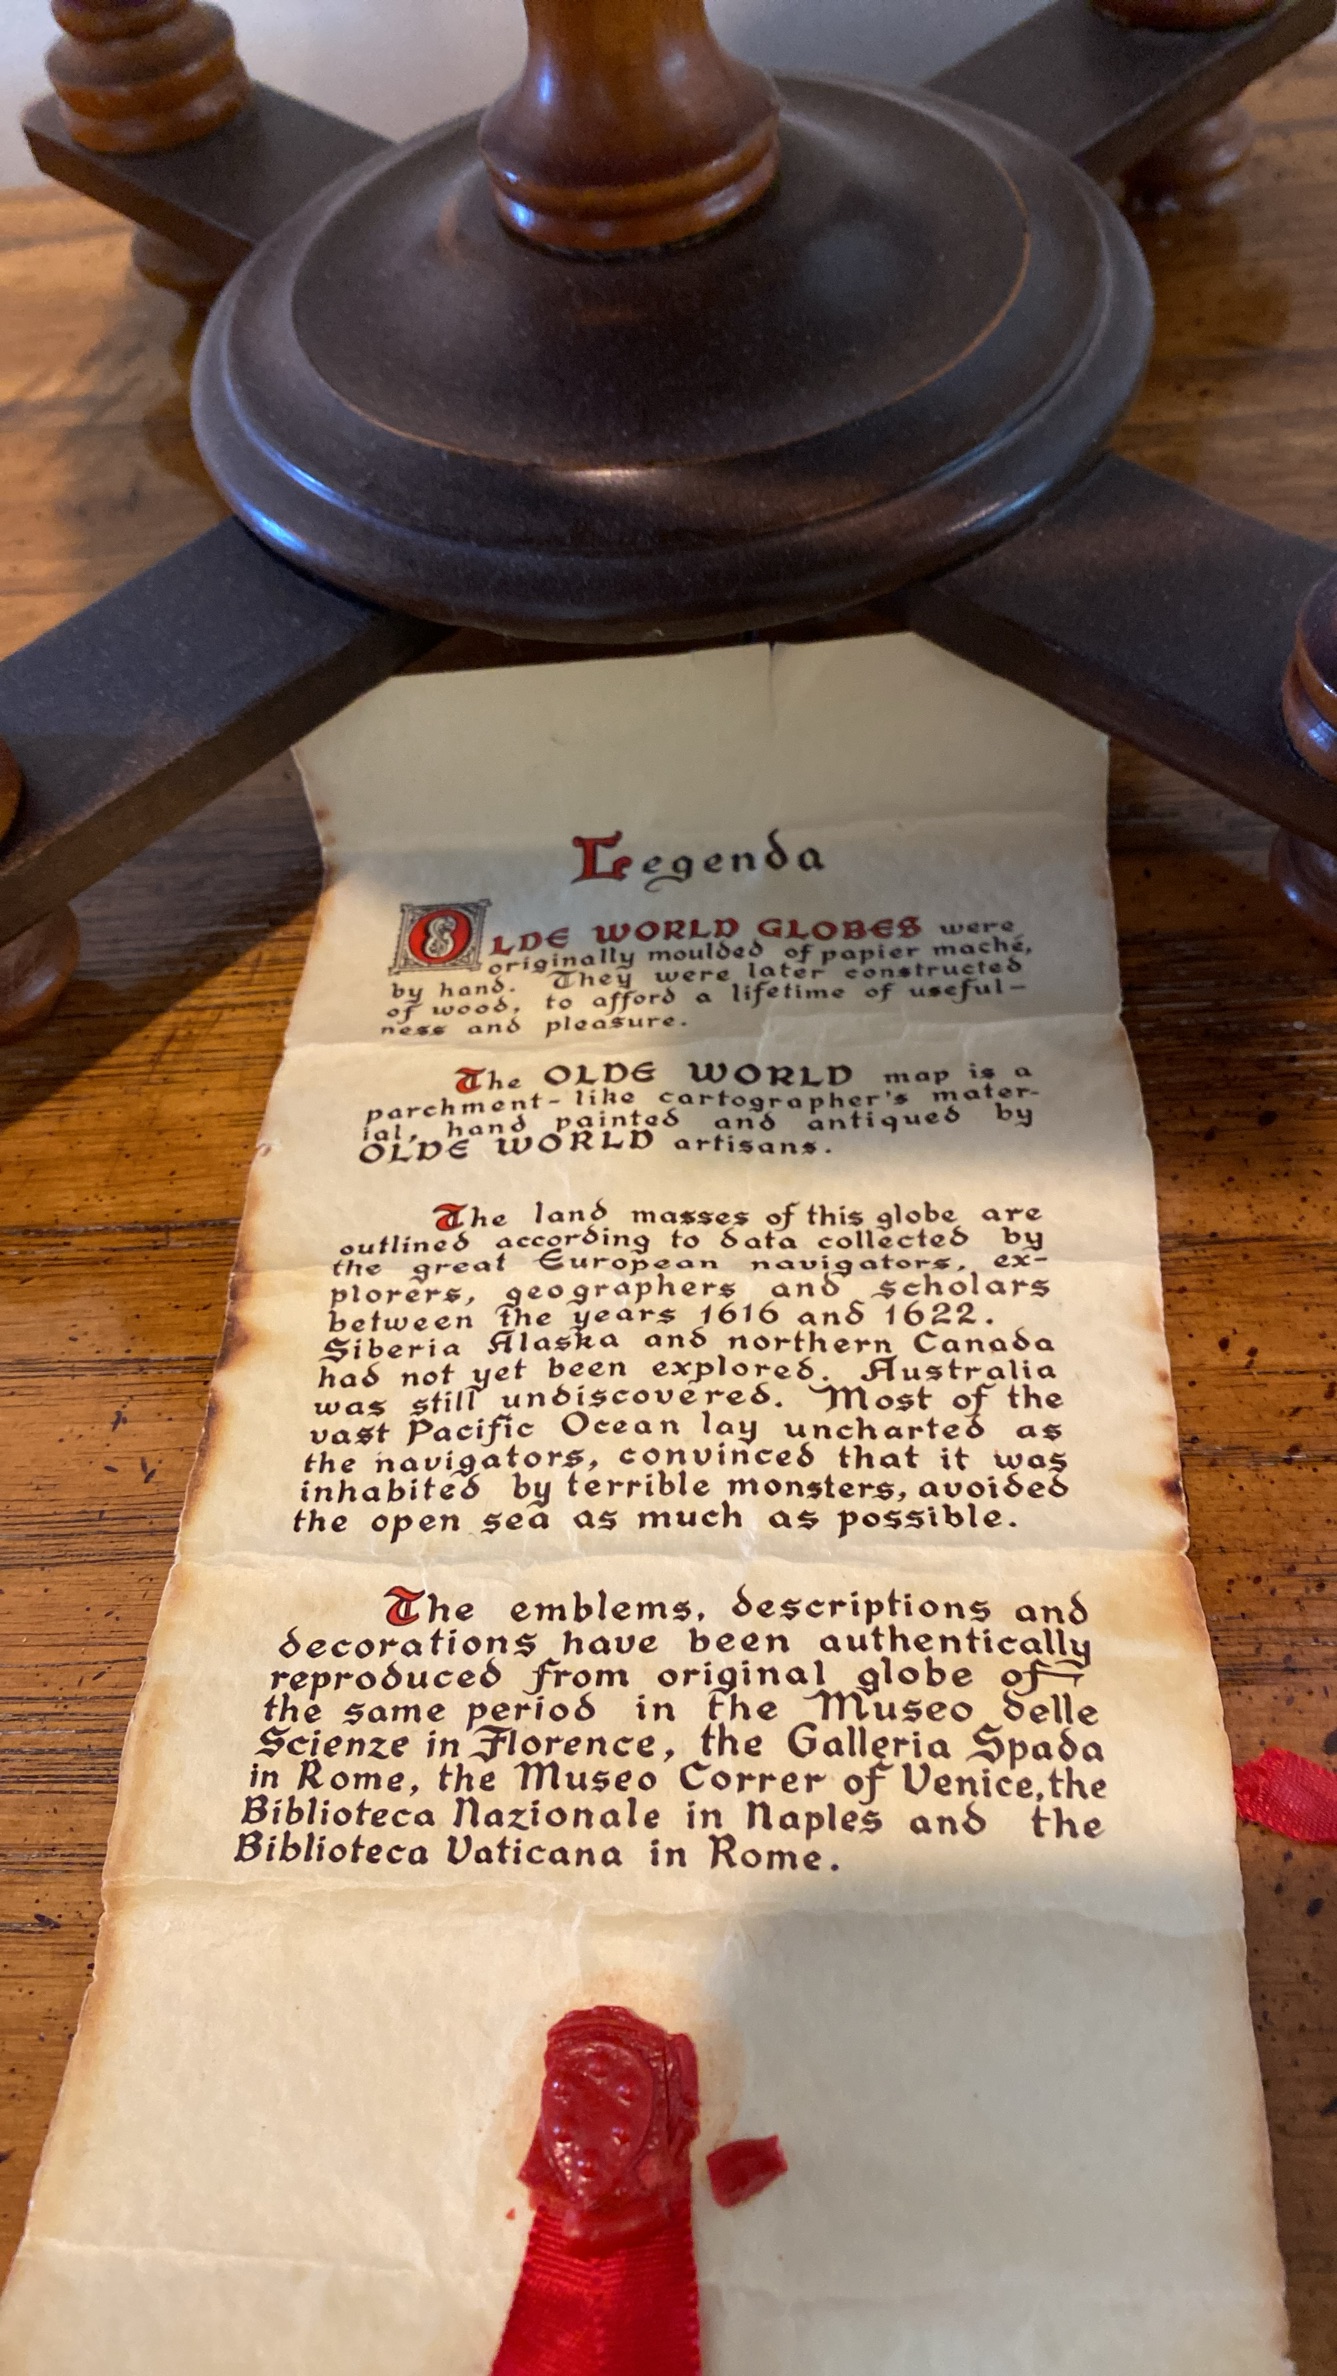 Legenda
OLDE WORLD GLOBES were
originally moulded of papier maché,
by hand. They were later constructed
of wood, to afford a lifetime of useful-
ness and pleasure.
The OLDE WORLD map is a
parchment-like cartographer's mater-
ial, hand painted and antiqued by
OLDE WORLD artisans.
The land masses of this globe are
outlined according to data collected by
the great European navigators, ex-
plorers, geographers and scholars
between the years 1616 and 1622.
Siberia Alaska and northern Canada
had not yet been explored. Australia
was still undiscovered. Most of the
vast Pacific Ocean lay uncharted as
the navigators, convinced that it was
inhabited by terrible monsters, avoided
the open sea as much as possible.
The emblems, descriptions and
decorations have been authentically
reproduced from original globe of
the same period in the Museo delle
Scienze in Florence, the Galleria Spada
in Rome, the Museo Correr of Venice, the
Biblioteca Nazionale in Naples and the
Biblioteca Vaticana in Rome.